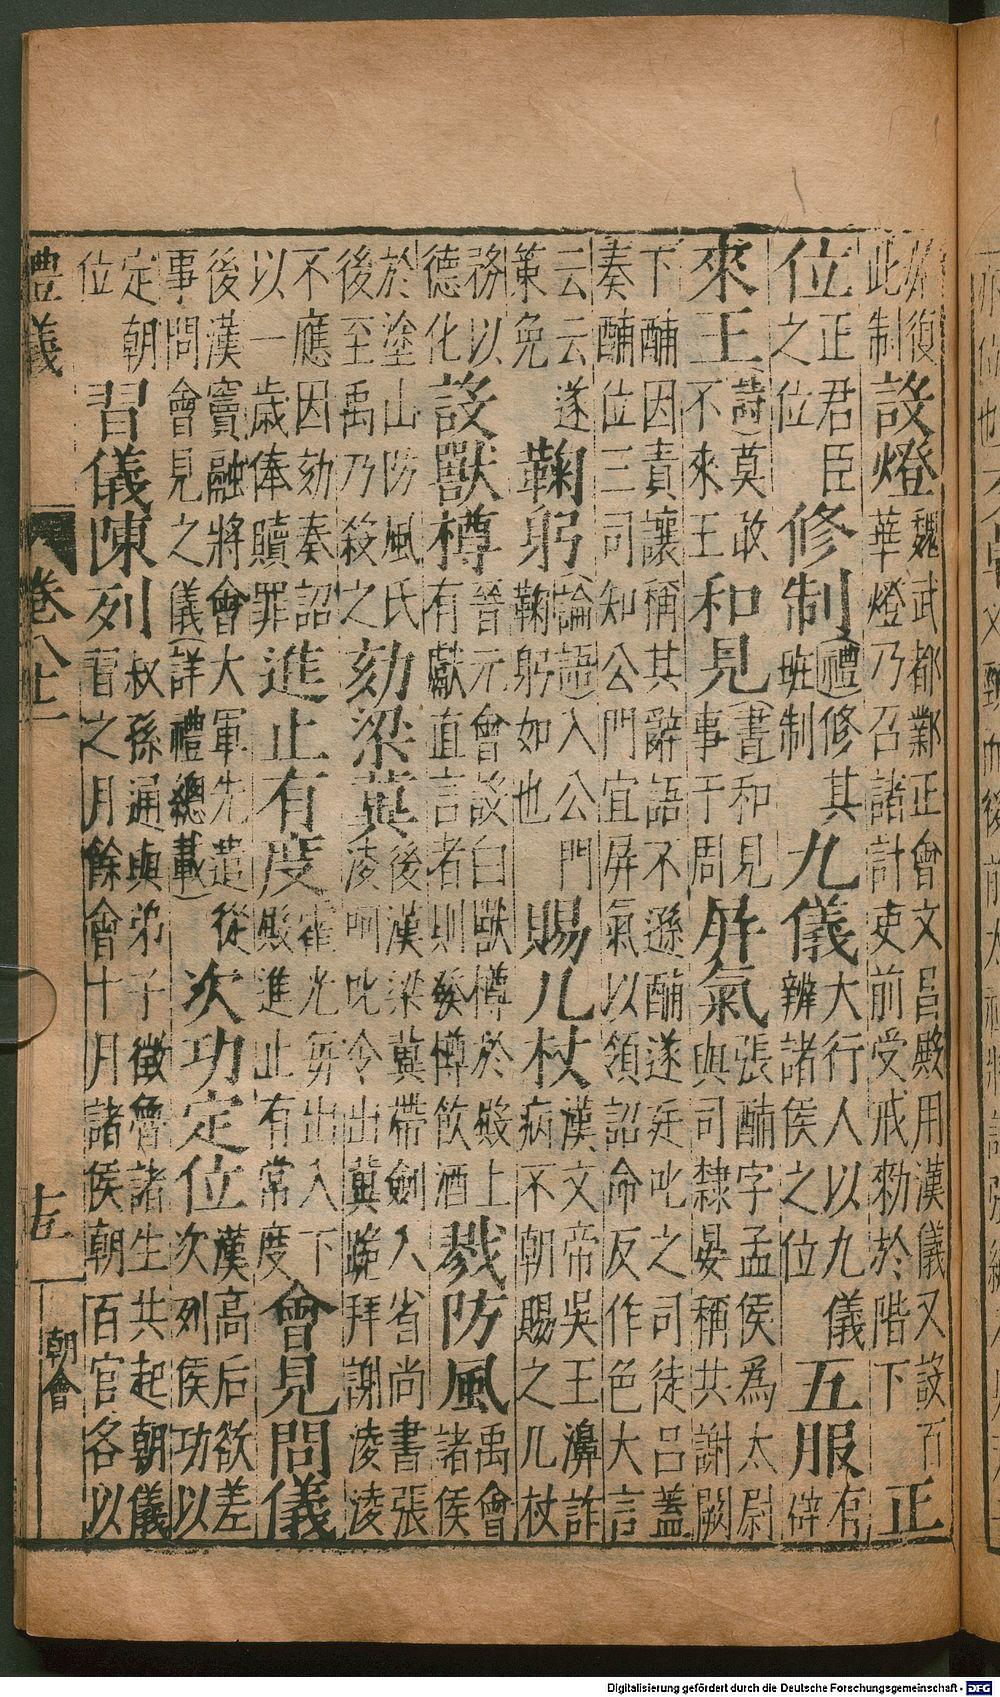 復此制設燈魏武都鄴正會文昌殿用漢儀又設百華燈乃召諸計吏前受戒勑於階下正
位正君臣之位修制(禮)修其班制九儀大行人以九儀辨諸侯之位五服有辟
來王(詩)莫敢不來王和見(書)和見事于周屏氣張酺字孟侯為太尉與司隸晏稱共謝闕
下酺因責讓稱其辭語不遜酺遂廷叱之司徒吕蓋奏酺位三司知公門宜屏氣以領詔命反作色大言
云云遂策免鞠躬(論語)入公門鞠躬如也賜几杖漢文帝吳王濞詐病不朝賜之几杖
務以德化設獸樽晉元會設白獸樽於殿上有獻直言者則發樽飲酒戮防風禹會諸侯
於塗山防風氏後至禹乃殺之劾梁冀後漢梁冀帶劍入省尚書張淩呵叱令出冀跪拜謝淩淩
不應因劾奏詔以一歲俸贖罪進止有度霍光每出入下殿進止有常度會見問儀
後漢竇融將會大軍先遣從事問會見之儀(詳禮總載)次功定位漢高后欲差次列侯功以
定朝位習儀陳列叔孫通與弟子徵魯諸生共起朝儀習之月餘會十月諸侯朝百官各以
禮儀
卷八
十五
朝會
Digitalisierung gefördert durch die Deutsche Forschungsgemeinschaft - DFG